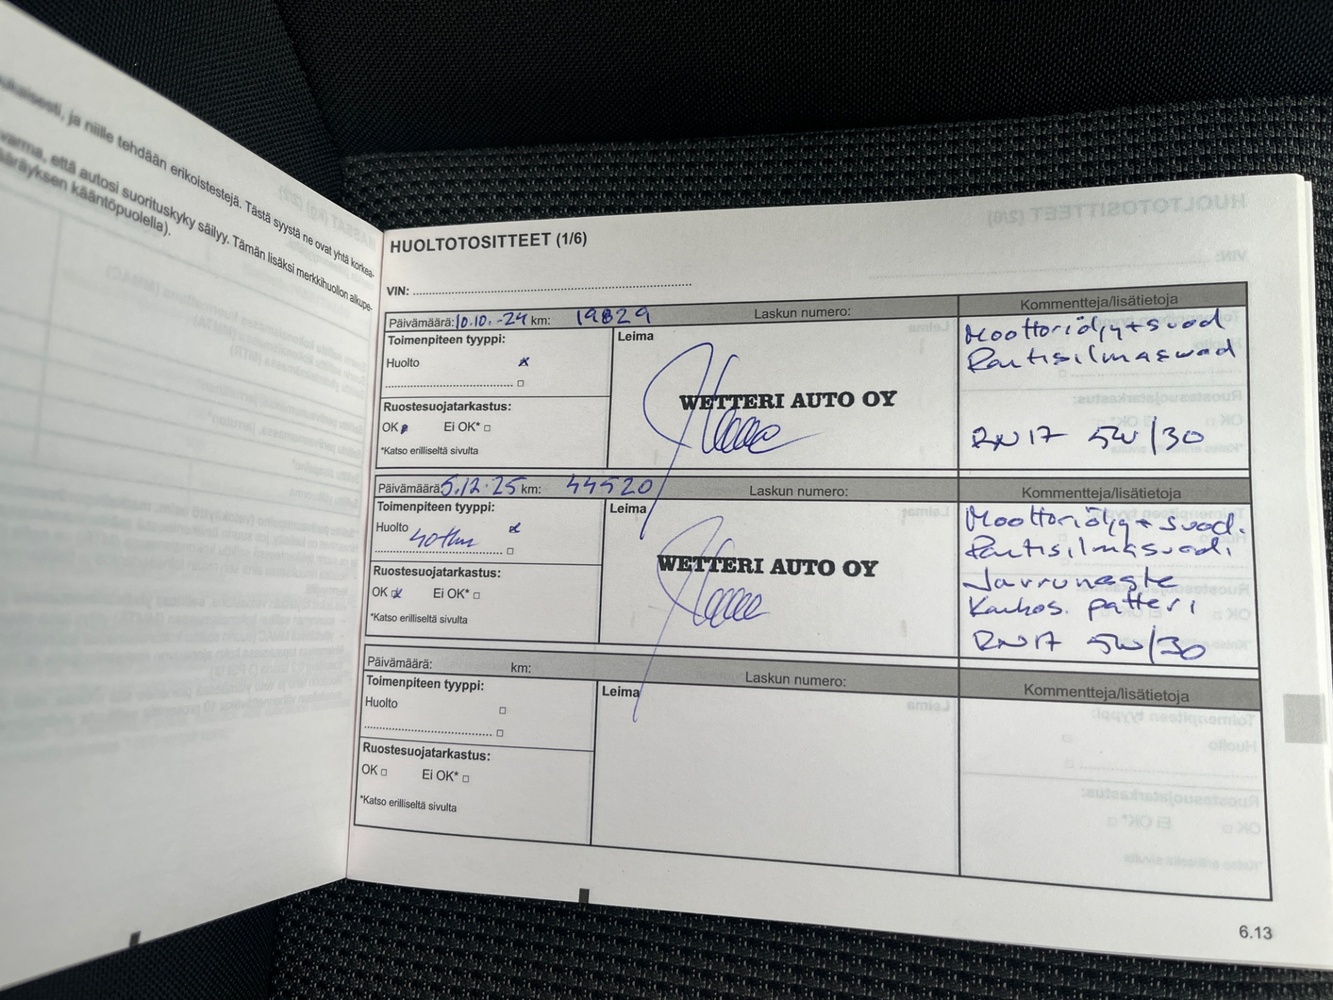 ukaisesti, ja niille tehdään erikoistestejä. Tästä syystä ne ovat yhtä korkea-
varma, että autosi suorituskyky säilyy. Tämän lisäksi merkkihuollon alkupe-
määräyksen kääntöpuolella).
HUOLTOTOSITTEET (1/6)
VIN:
Päivämäärä: 10.10.-24 km: 19829 Laskun numero: Kommentteja/lisätietoja
Toimenpiteen tyyppi: Leima
Huolto x
Ruostesuojatarkastus:
OK Ei OK*
*Katso erilliseltä sivulta
WETTERI AUTO OY
Moottoriöljy+suod
Raitisilmasuod
RN17 5W/30
Päivämäärä: 5.12.25 km: 44520 Laskun numero: Kommentteja/lisätietoja
Toimenpiteen tyyppi: Leima
Huolto x
40tkm
Ruostesuojatarkastus:
OK x Ei OK*
*Katso erilliseltä sivulta
WETTERI AUTO OY
Moottoriöljy+suod.
Raitisilmasuod.
Jarruneste
Kaukos. patteri
RN17 5W/30
Päivämäärä: km: Laskun numero: Kommentteja/lisätietoja
Toimenpiteen tyyppi: Leima
Huolto
Ruostesuojatarkastus:
OK Ei OK*
*Katso erilliseltä sivulta
6.13